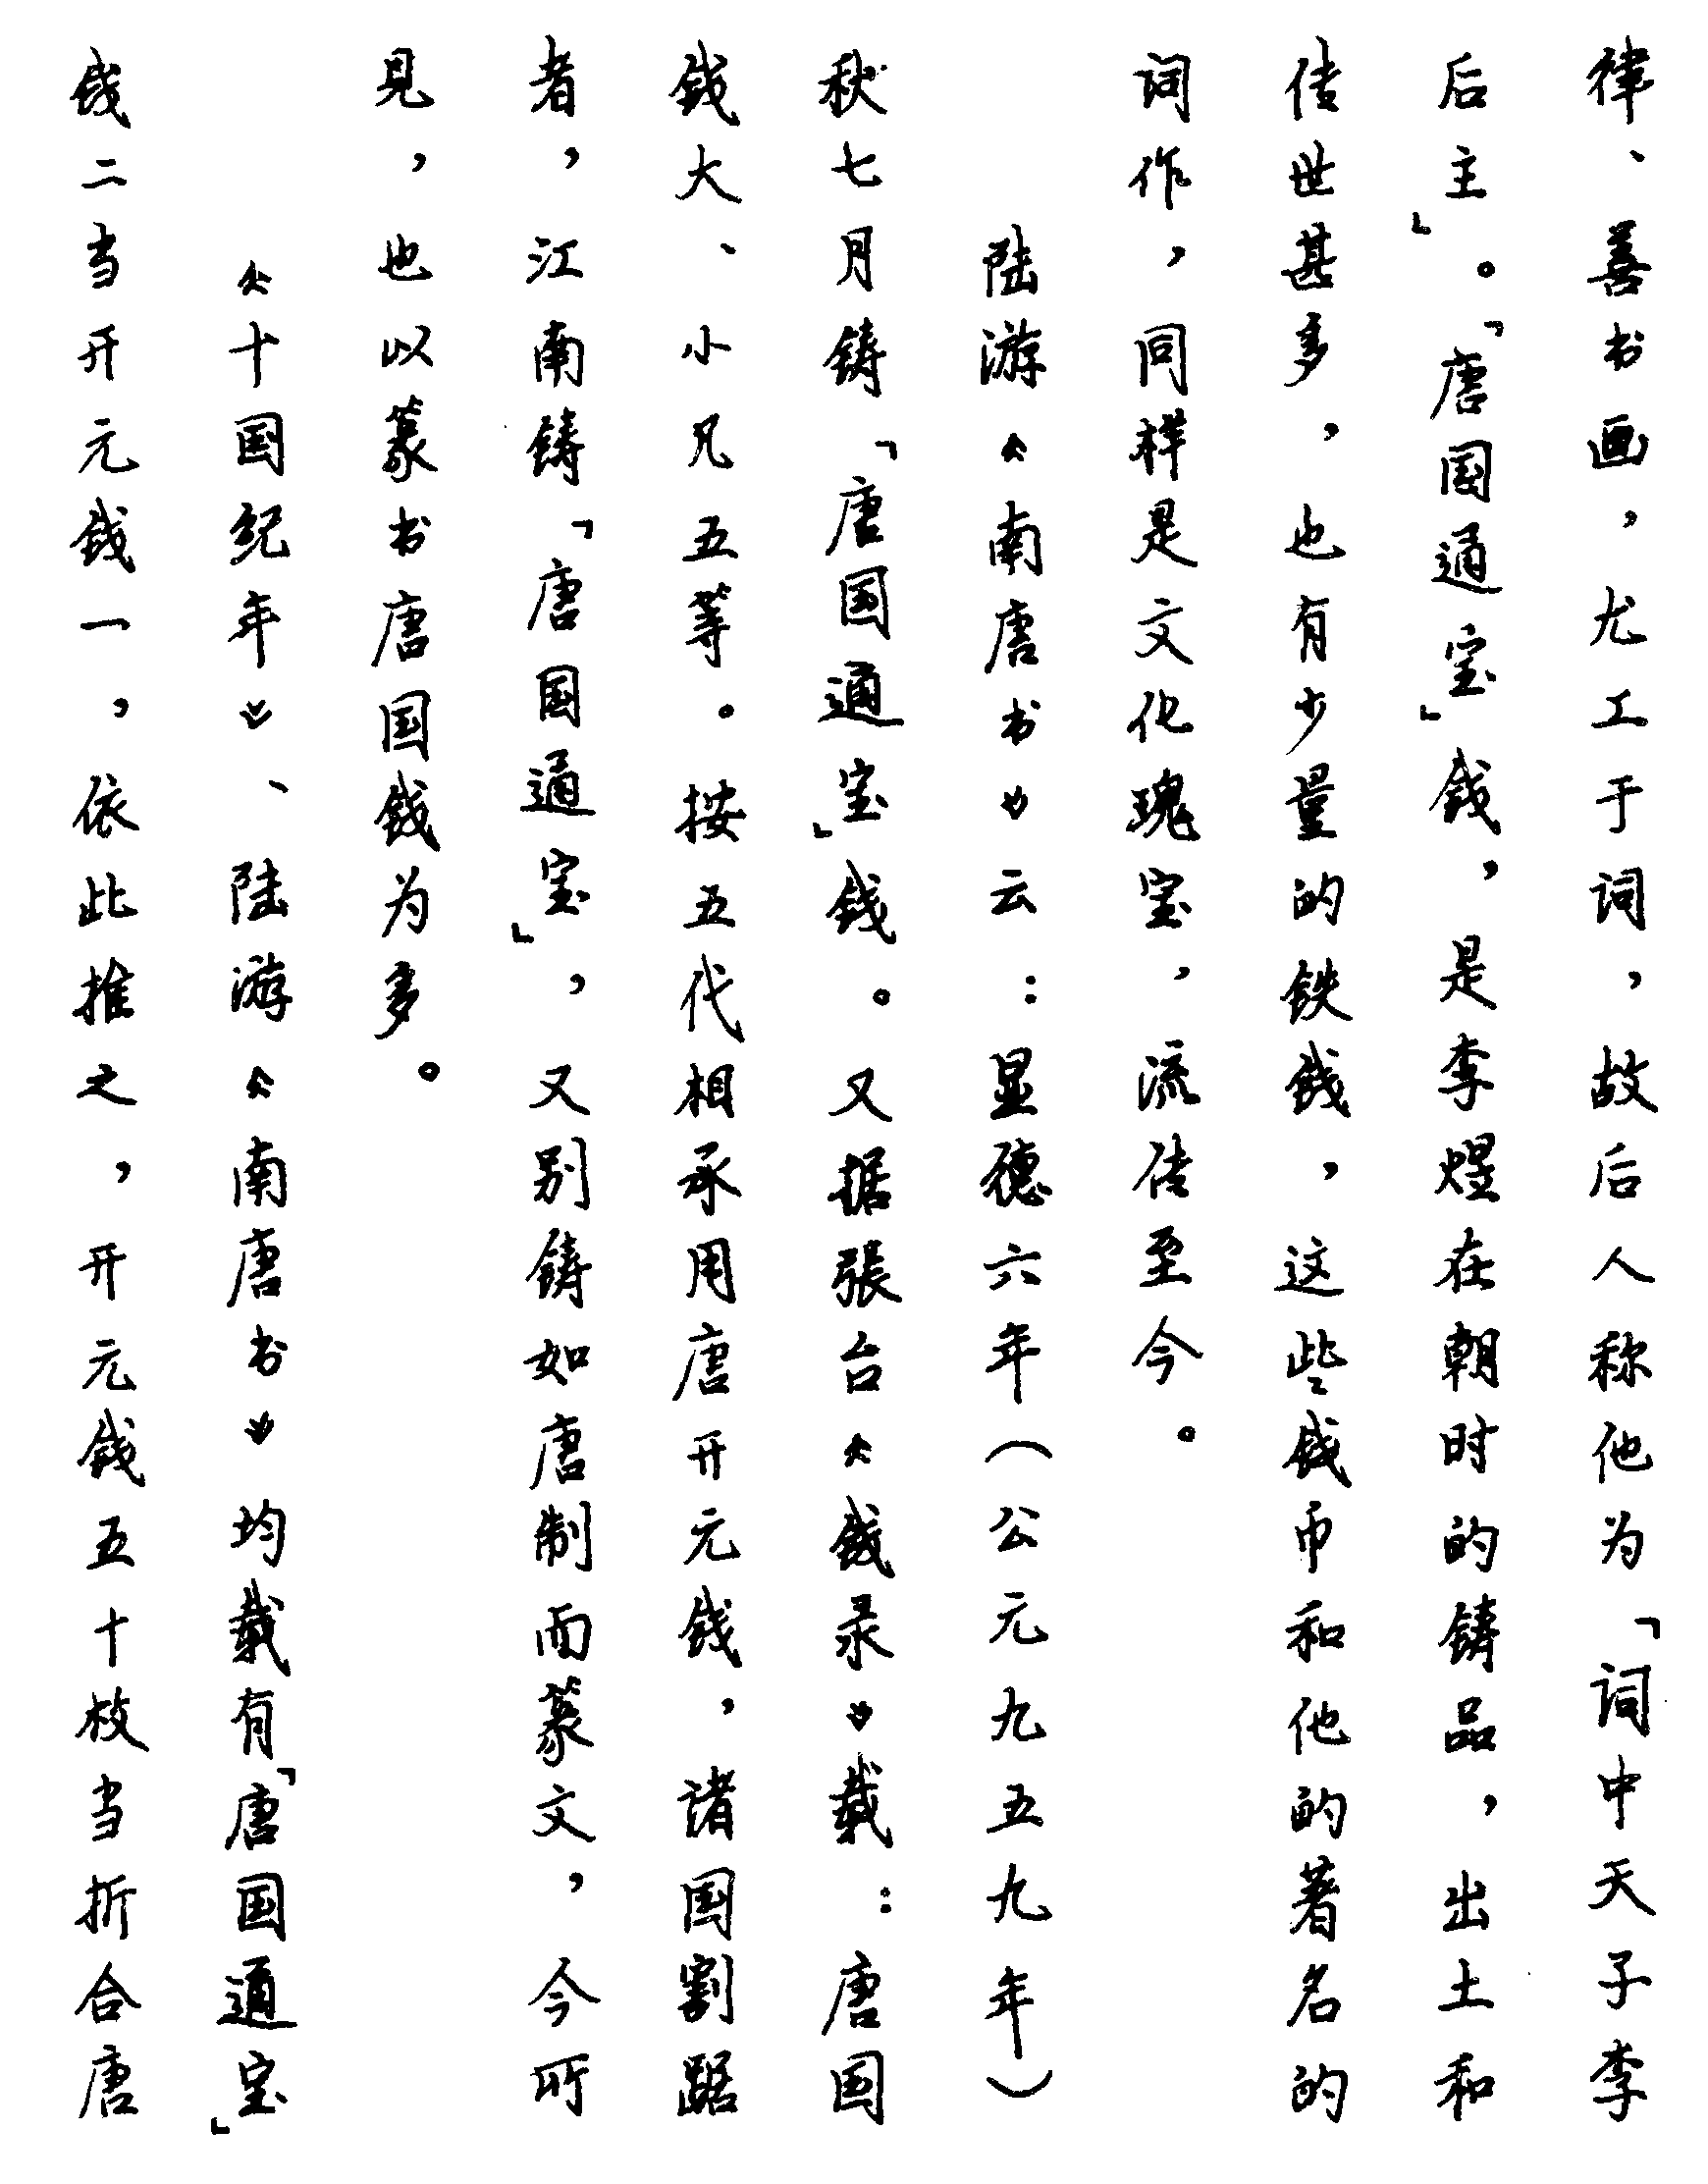 律、善书画，尤工于词，故后人称他为「词中天子李
后主」。「唐国通宝」钱，是李煜在朝时的铸品，出土和
传世甚多，也有少量的铁钱，这些钱币和他的著名的
词作，同样是文化瑰宝，流传至今。
陆游《南唐书》云：显德六年（公元九五九年）
秋七月铸「唐国通宝」钱。又据張台《钱录》载：唐国
钱大、小凡五等。按五代相承用唐开元钱，诸国割踞
者，江南铸「唐国通宝」，又别铸如唐制而篆文，今所
見，也以篆书唐国钱为多。
《十国纪年》、陆游《南唐书》均载有「唐国通宝」
钱二当开元钱一，依此推之，开元钱五十枚当折合唐